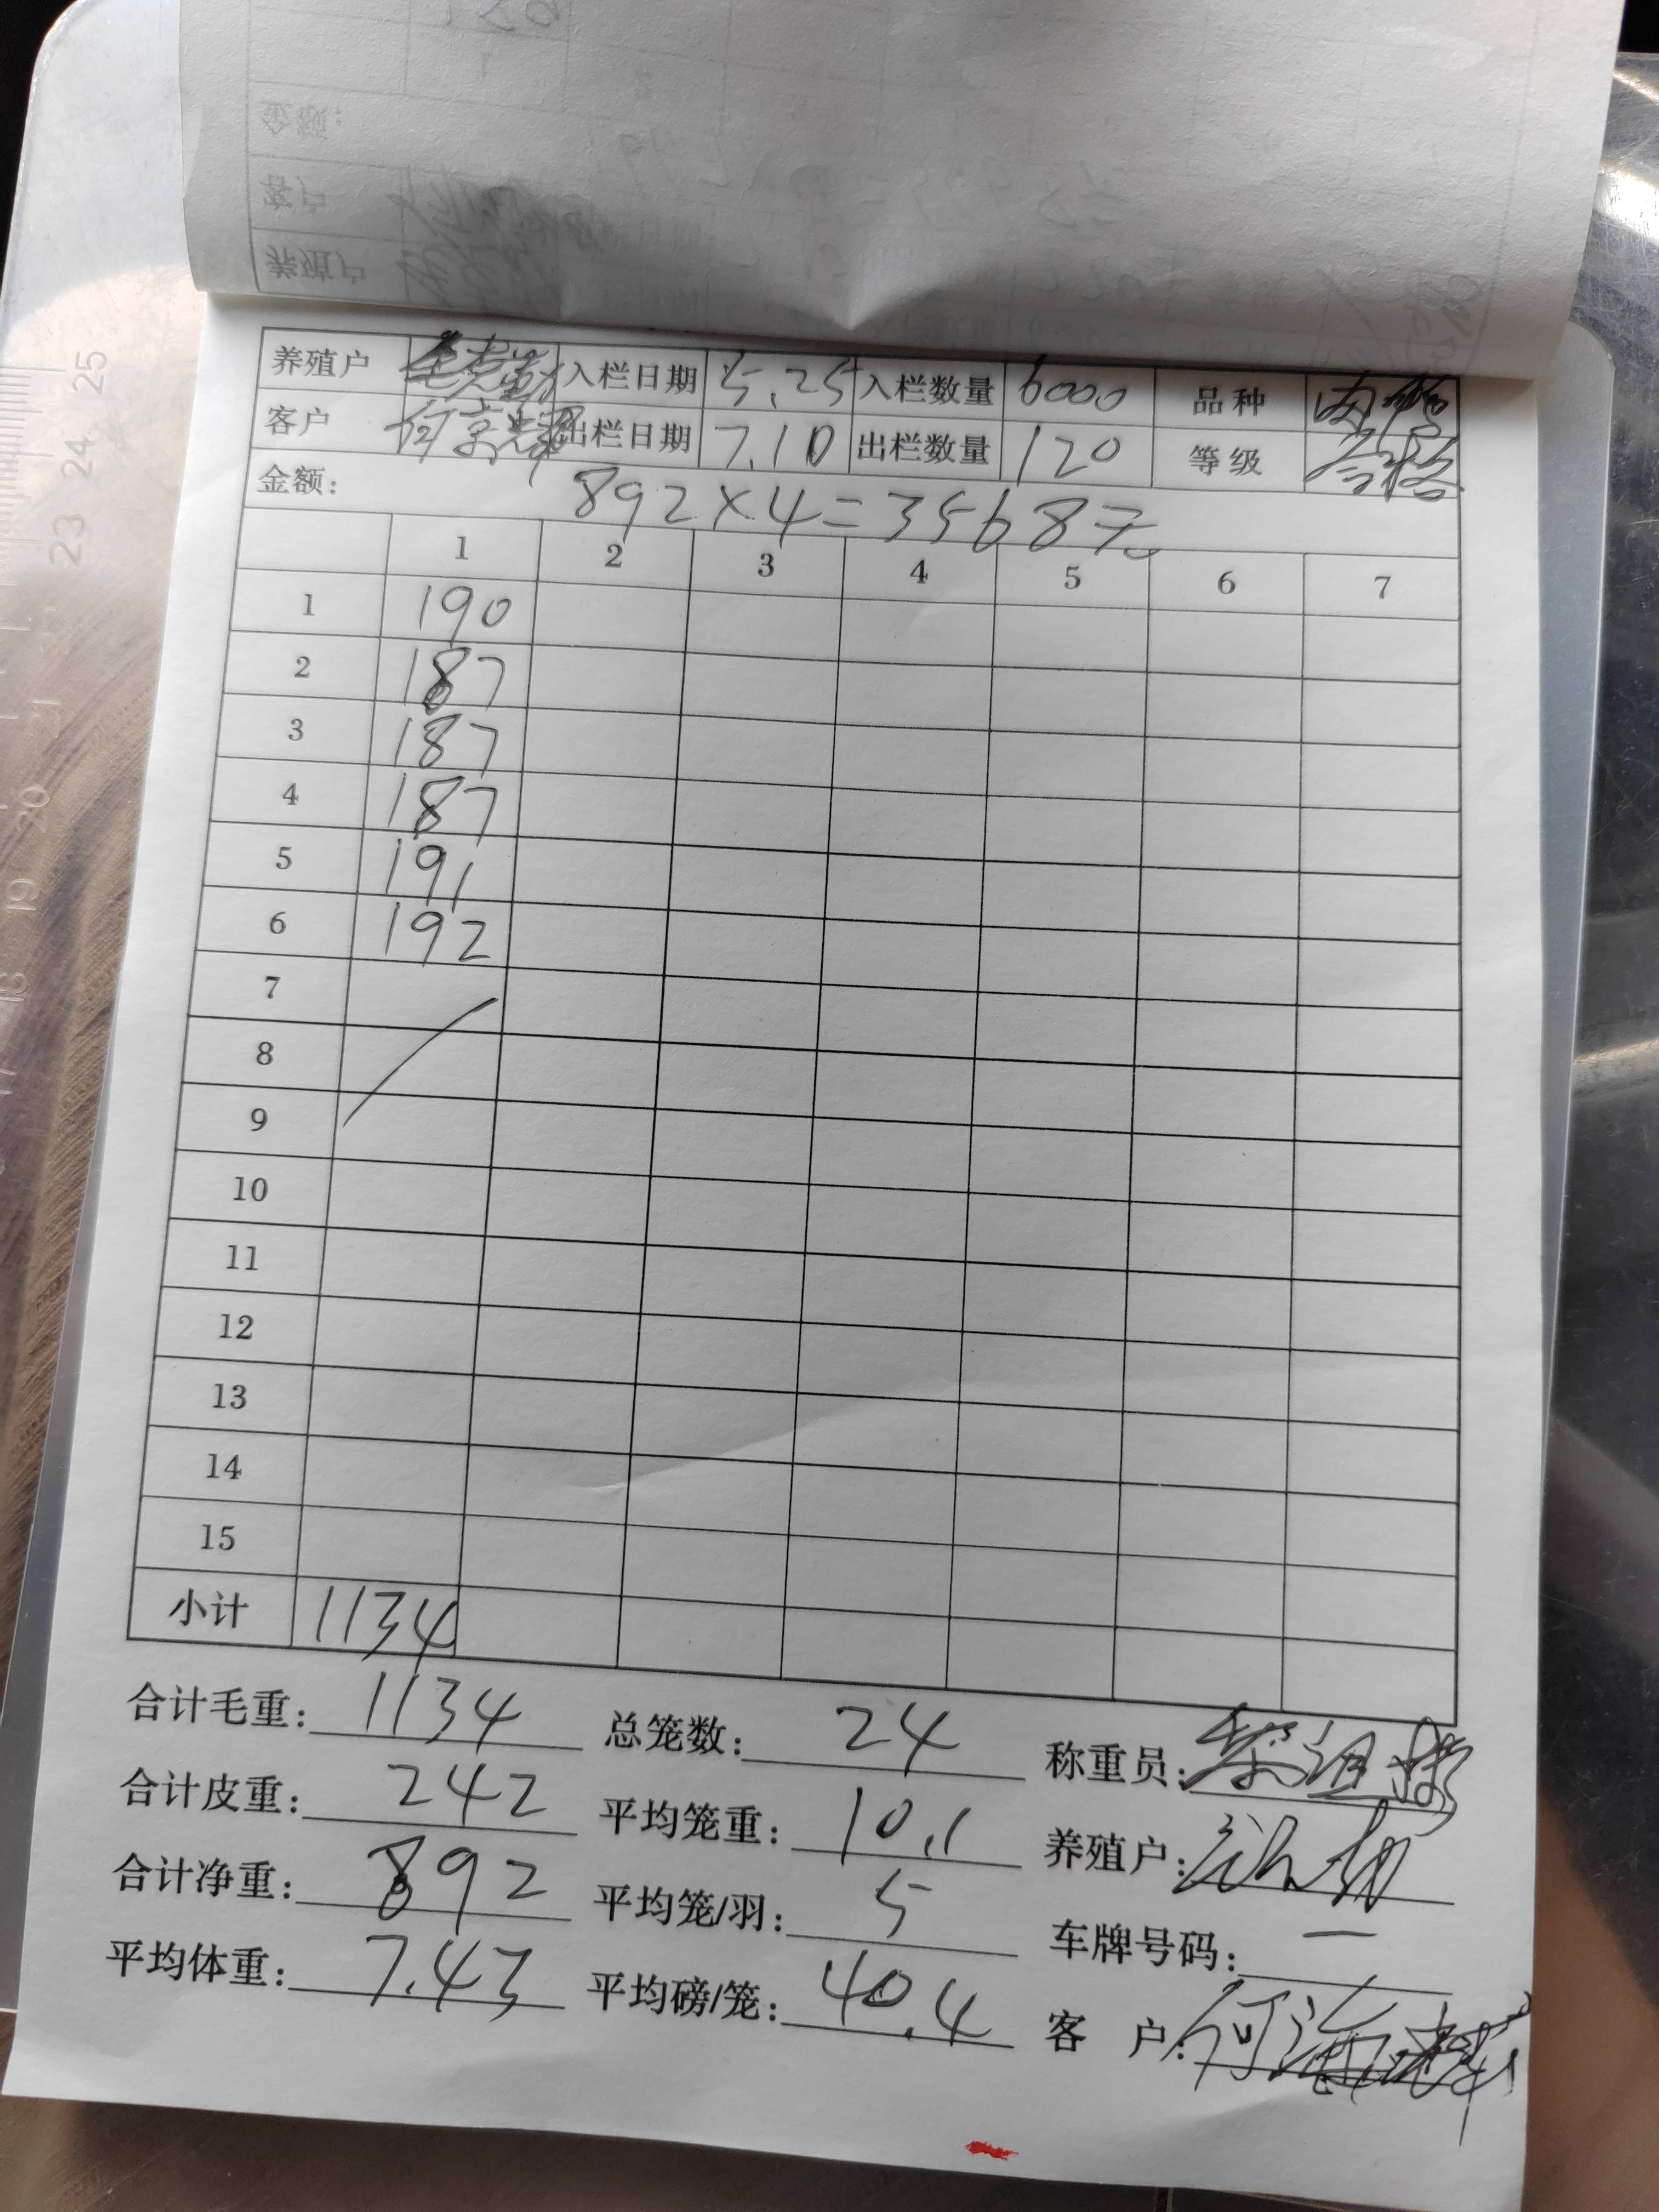 养殖户 入栏日期 5.25 入栏数量 6000 品种
客户 出栏日期 7.10 出栏数量 120 等级 合格
金额: 892×4=3568元
1 2 3 4 5 6 7
1 190
2 187
3 187
4 187
5 191
6 192
7
8
9
10
11
12
13
14
15
小计 1134
合计毛重: 1134 总笼数: 24 称重员:
合计皮重: 242 平均笼重: 10.1 养殖户:
合计净重: 892 平均笼/羽: 5 车牌号码: 一
平均体重: 7.43 平均磅/笼: 40.4 客 户: